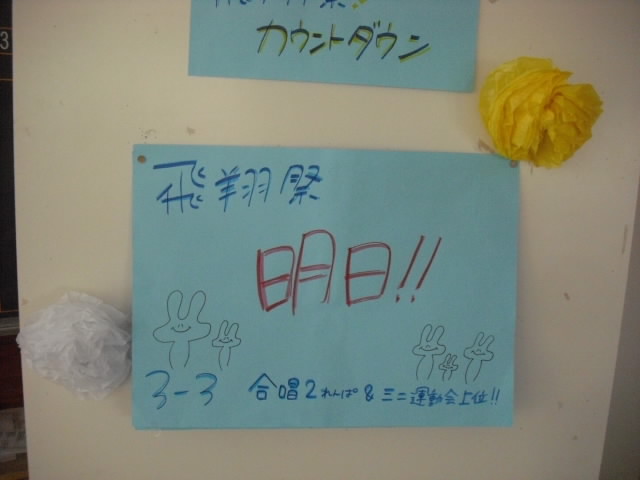 飛翔祭!!
カウントダウン
飛翔祭
明日!!
3-3 合唱2れんぱ & ミニ運動会上位!!